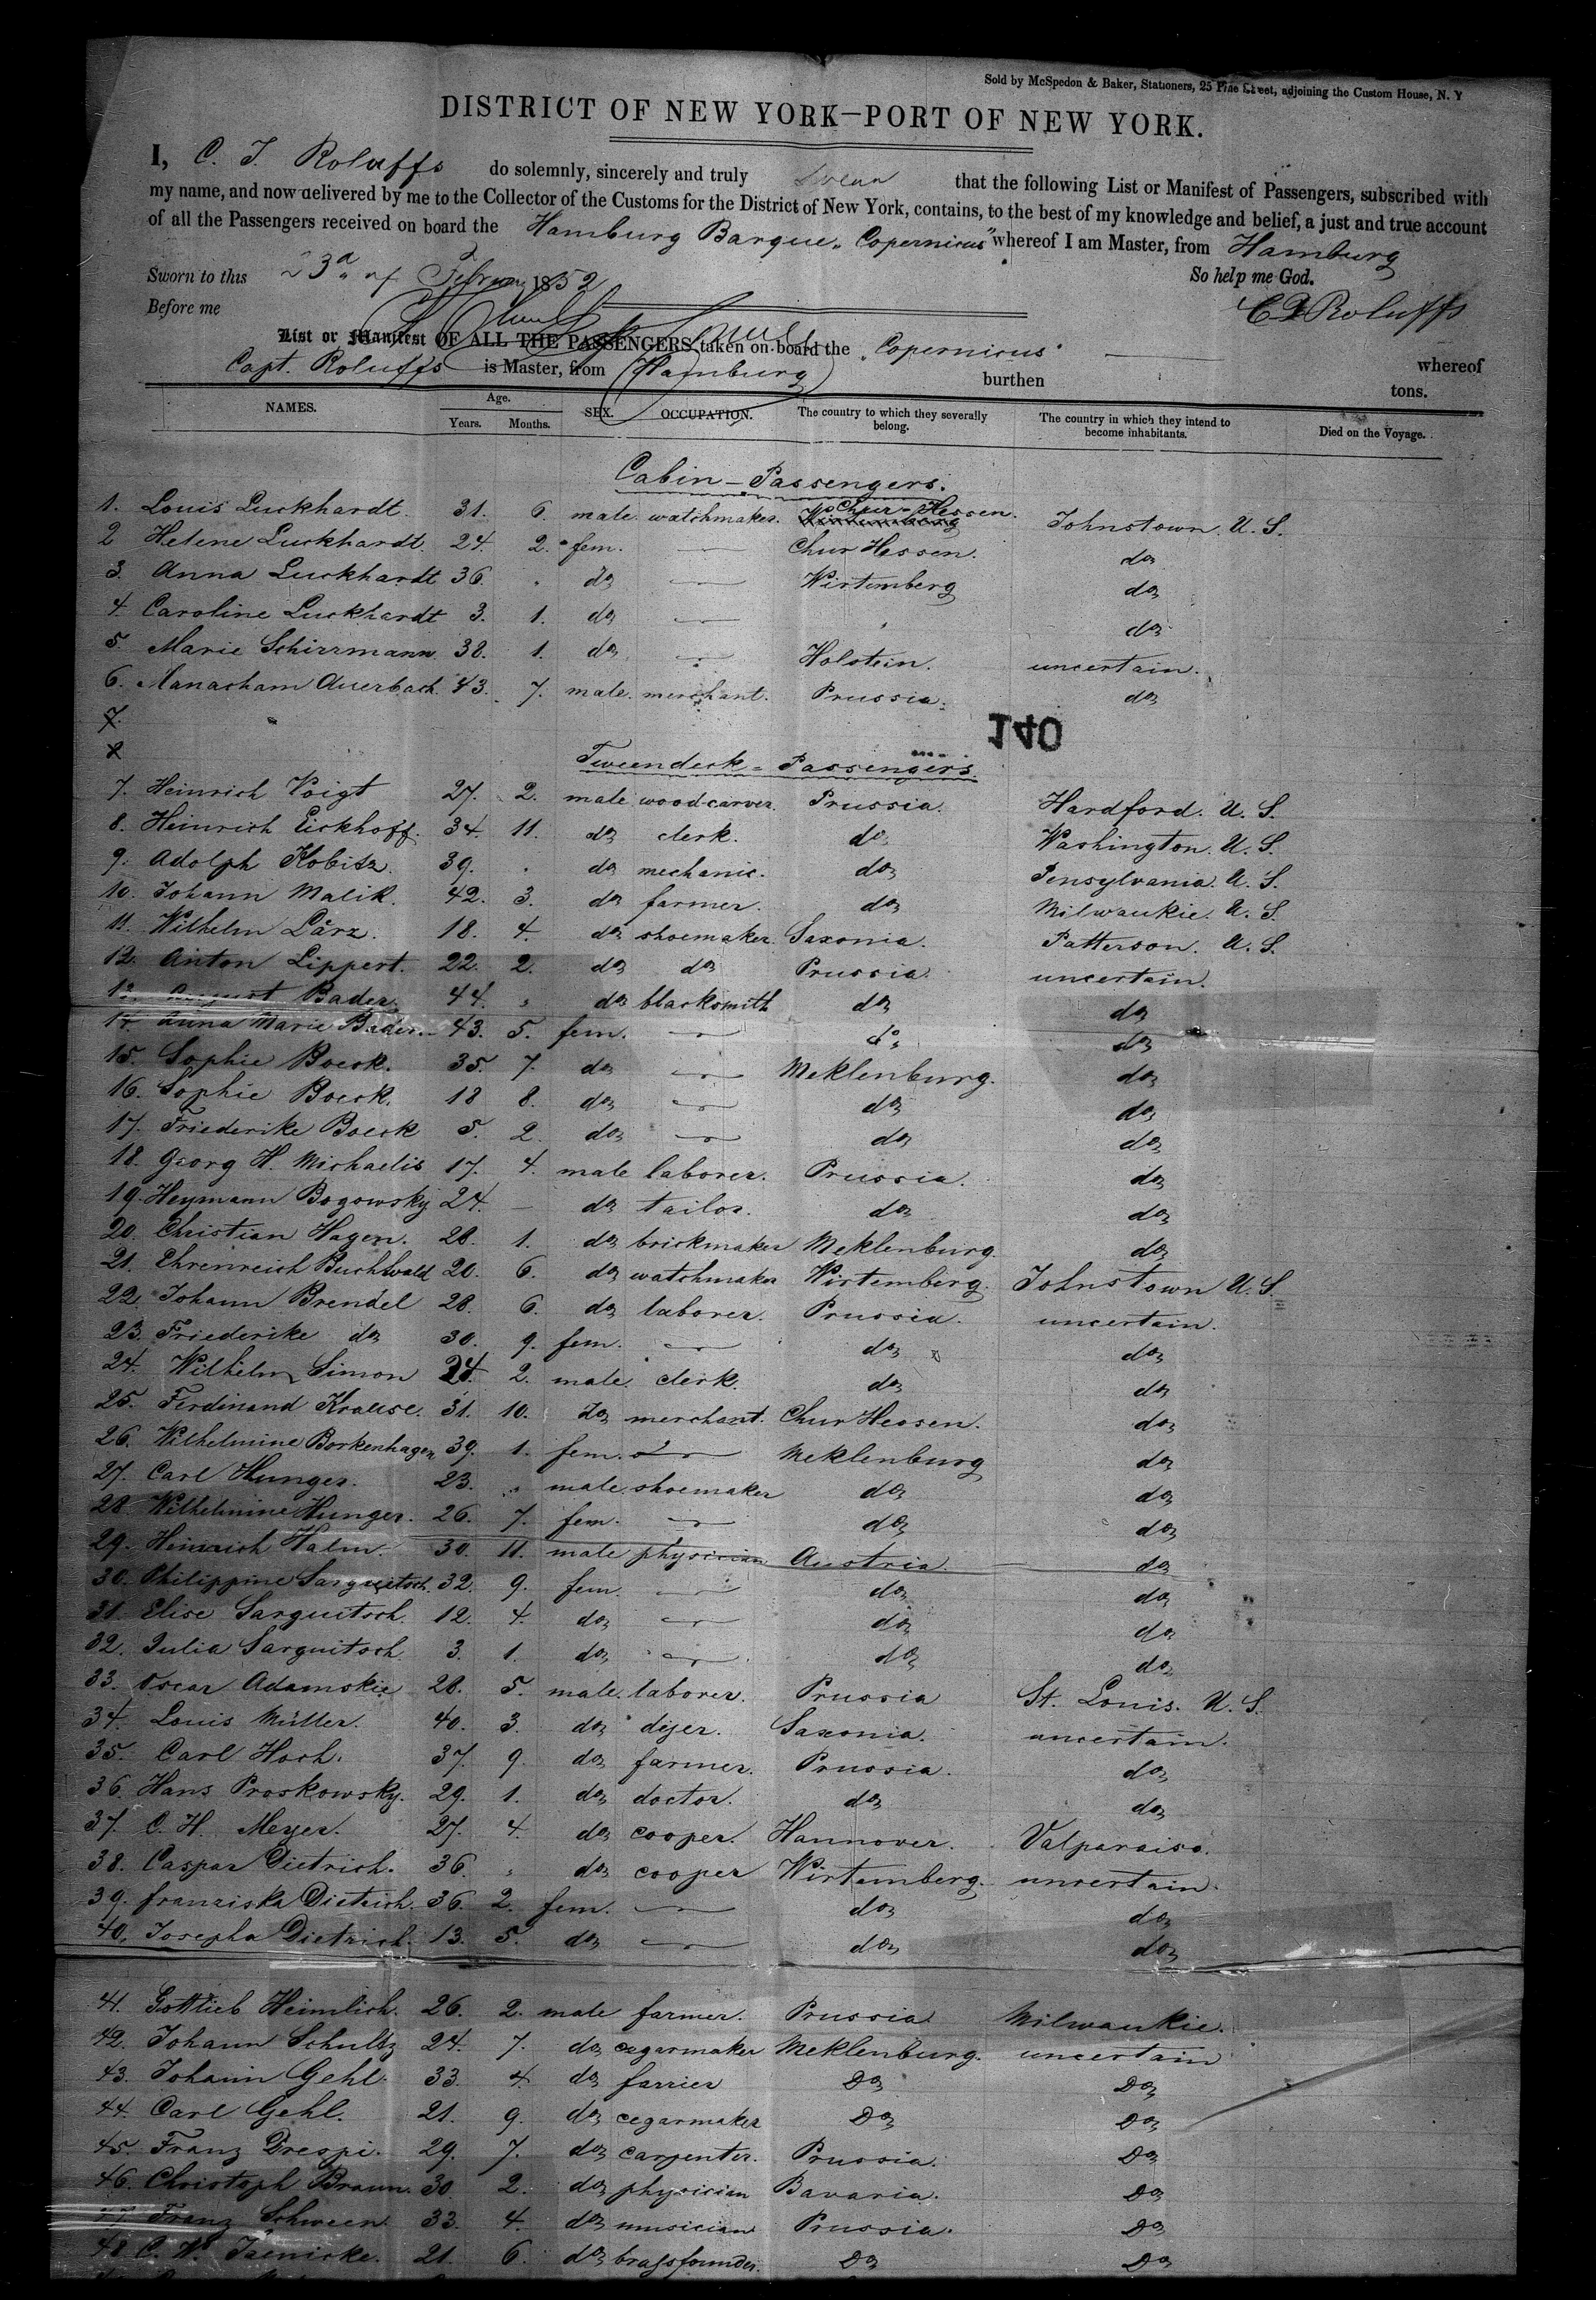 Sold by McSpedon & Baker, Stationers, 25 Pine Street, adjoining the Custom House, N. Y
DISTRICT OF NEW YORK—PORT OF NEW YORK.
I, C. J. Roluffs do solemnly, sincerely and truly swear that the following List or Manifest of Passengers, subscribed with
my name, and now delivered by me to the Collector of the Customs for the District of New York, contains, to the best of my knowledge and belief, a just and true account
of all the Passengers received on board the Hamburg Barque "Copernicus" whereof I am Master, from Hamburg
Sworn to this 23d of 1852 So help me God.
Before me Roluffs
List or Manifest OF ALL THE PASSENGERS taken on board the "Copernicus" whereof
Capt. Roluffs is Master, from Hamburg burthen tons.
NAMES. Age. Years. Months. SEX. OCCUPATION. The country to which they severally belong. The country in which they intend to become inhabitants. Died on the Voyage.
Cabin-Passengers.
1. Louis Luckhardt. 31. 6. male. watchmaker. Chur-Hessen. Johnstown. U. S.
2 Helene Luckhardt. 24. 2. fem. — Chur Hessen. do
3. Anna Luckhardt 36. " do — Wirtemberg do
4. Caroline Luckhardt 3. 1. do — " do
5. Marie Schirrmann 38. 1. do — Holstein. uncertain.
6. Manacham Auerbach. 43. 7. male. merchant. Prussia. do
7.
8
140
Tweendeck-Passengers.
7. Heinrich Voigt 27. 2. male wood-carver. Prussia. Hardford. U. S.
8. Heinrich Eickhoff. 34. 11. do clerk. do Washington. U. S.
9. Adolph Kobitz. 39. " do mechanic. do Pensylvania. U. S.
10. Johann Malik. 42. 3. do farmer. do Milwaukie. U. S.
11. Wilhelm Lärz. 18. 4. do shoemaker. Saxonia. Patterson. U. S.
12. Anton Lippert. 22. 2. do do Prussia. uncertain.
13. August Bader. 44. " do blacksmith do do
14. Anna Marie Bader. 43. 5. fem. — do do
15. Sophie Boeck. 35. 7. do — Meklenburg. do
16. Sophie Boeck. 18 8. do — do do
17. Friederike Boeck 5. 2. do — do do
18. Georg H. Michaelis 17. 4. male laborer. Prussia. do
19. Heymann Bogowsky 24. — do tailor. do do
20. Christian Hagen. 28. 1. do brickmaker Meklenburg. do
21. Ehrenreich Buchwald 20. 6. do watchmaker Wirtemberg. Johnstown U. S.
22. Johann Brendel 28. 6. do laborer. Prussia. uncertain.
23. Friederike do 30. 9. fem. — do do
24. Wilhelm Simon 24. 2. male. clerk. do do
25. Ferdinand Krause. 31. 10. do merchant. Chur Hessen. do
26. Wilhelmine Borkenhagen 39. 1. fem. — Meklenburg do
27. Carl Hunger. 23. " male. shoemaker do do
28. Wilhelmine Hunger. 26. 7. fem. — do do
29. Heinrich Halm. 30. 11. male physician Austria. do
30. Philippine Sarguitsch. 32. 9. fem. — do do
31. Elise Sarguitsch. 12. 4. do — do do
32. Julia Sarguitsch 3. 1. do — do do
33. Oscar Adamskie 28. 5. male. laborer. Prussia St. Louis. U. S.
34. Louis Müller. 40. 3. do dijer. Saxonia. uncertain.
35. Carl Hoch. 37. 9. do farmer. Prussia. do
36. Hans Proskowsky. 29. 1. do doctor. do do
37. C. H. Meyer. 27. 4. do cooper. Hannover. Valparaiso.
38. Caspar Dietrich. 36. " do cooper Wirtemberg. uncertain.
39. Franziska Dietrich. 36. 2. fem. — do do
40. Josepha Dietrich. 13. 5. do — do do
41. Gottlieb Heimlich. 26. 2. male farmer. Prussia Milwaukie.
42. Johann Schultz 24. 7. do cegarmaker Meklenburg. uncertain
43. Johann Gehl. 33. 4. do farrier Do Do
44. Carl Gehl. 21. 9. do cegarmaker Do Do
45. Franz Drespi. 29. 7. do carpenter. Prussia. Do
46. Christoph Braun. 30 2. do physician Bavaria. Do
47. Franz Schween. 33. 4. do musician Prussia. Do
48. C. W. Jaenicke. 21. 6. do brassfounder. Do Do